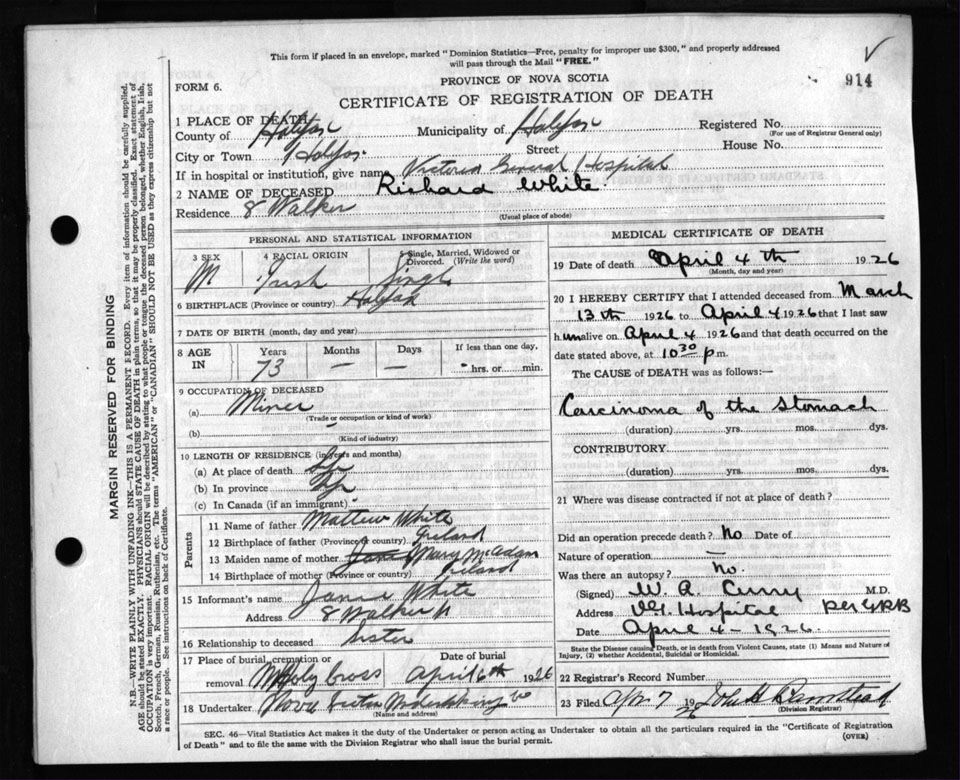 This form if placed in an envelope, marked "Dominion Statistics—Free, penalty for improper use $300," and properly addressed
will pass through the Mail "FREE."
914
FORM 6.
PROVINCE OF NOVA SCOTIA
CERTIFICATE OF REGISTRATION OF DEATH
1 PLACE OF DEATH
County of Halifax Municipality of Halifax Registered No.
(For use of Registrar General only)
City or Town Halifax Street House No.
If in hospital or institution, give name Victoria General Hospital
2 NAME OF DECEASED Richard White
Residence 8 Walker
(Usual place of abode)
PERSONAL AND STATISTICAL INFORMATION
3 SEX 4 RACIAL ORIGIN 5 Single, Married, Widowed or
Divorced. (Write the word)
M Irish Single
6 BIRTHPLACE (Province or country) Halifax
7 DATE OF BIRTH (month, day and year)
8 AGE IN Years Months Days If less than one day,
73 — — hrs. or min.
9 OCCUPATION OF DECEASED
(a) Miner
(Trade or occupation or kind of work)
(b)
(Kind of industry)
10 LENGTH OF RESIDENCE (in years and months)
(a) At place of death Life
(b) In province Life
(c) In Canada (if an immigrant)
Parents
11 Name of father Mattew White
12 Birthplace of father (Province or country) Ireland
13 Maiden name of mother Jane Mary McAdam
14 Birthplace of mother (Province or country) Ireland
15 Informant's name Janie White
Address 8 Walker
16 Relationship to deceased Sister
17 Place of burial, cremation or Date of burial
removal Holy Cross April 6th 1926
18 Undertaker Nova Scotia Undertaking Co
(Name and address)
MEDICAL CERTIFICATE OF DEATH
19 Date of death April 4th 1926
(Month, day and year)
20 I HEREBY CERTIFY that I attended deceased from March
13th 1926 to April 4 1926 that I last saw
him alive on April 4 1926 and that death occurred on the
date stated above, at 10 30 p m.
The CAUSE of DEATH was as follows:—
Carcinoma of the Stomach
(duration) yrs. mos. dys.
CONTRIBUTORY
(duration) yrs. mos. dys.
21 Where was disease contracted if not at place of death?
Did an operation precede death? No Date of
Nature of operation —
Was there an autopsy? No.
(Signed) W. A. Curry M.D.
Address V.G. Hospital per
Date April 4 - 1926.
State the Disease causing Death, or in death from Violent Causes, state (1) Means and Nature of
Injury, (2) whether Accidental, Suicidal or Homicidal.
22 Registrar's Record Number
23 Filed Apr 7 1926
(Division Registrar)
SEC. 46—Vital Statistics Act makes it the duty of the Undertaker or person acting as Undertaker to obtain all the particulars required in the "Certificate of Registration
of Death" and to file the same with the Division Registrar who shall issue the burial permit. (OVER)
MARGIN RESERVED FOR BINDING
N.B.—WRITE PLAINLY WITH UNFADING INK—THIS IS A PERMANENT RECORD. Every item of information should be carefully supplied.
AGE should be stated EXACTLY. PHYSICIANS should STATE CAUSE OF DEATH in plain terms, so that it may be properly classified. Exact statement of
OCCUPATION is very important. RACIAL ORIGIN will be described by stating to what people or tongue the deceased person belonged, whether English, Irish,
Scotch, French, German, Russian, Ruthenian, etc. The terms "AMERICAN" or "CANADIAN" SHOULD NOT BE USED as they express citizenship but not
a race or people. See instructions on back of Certificate.